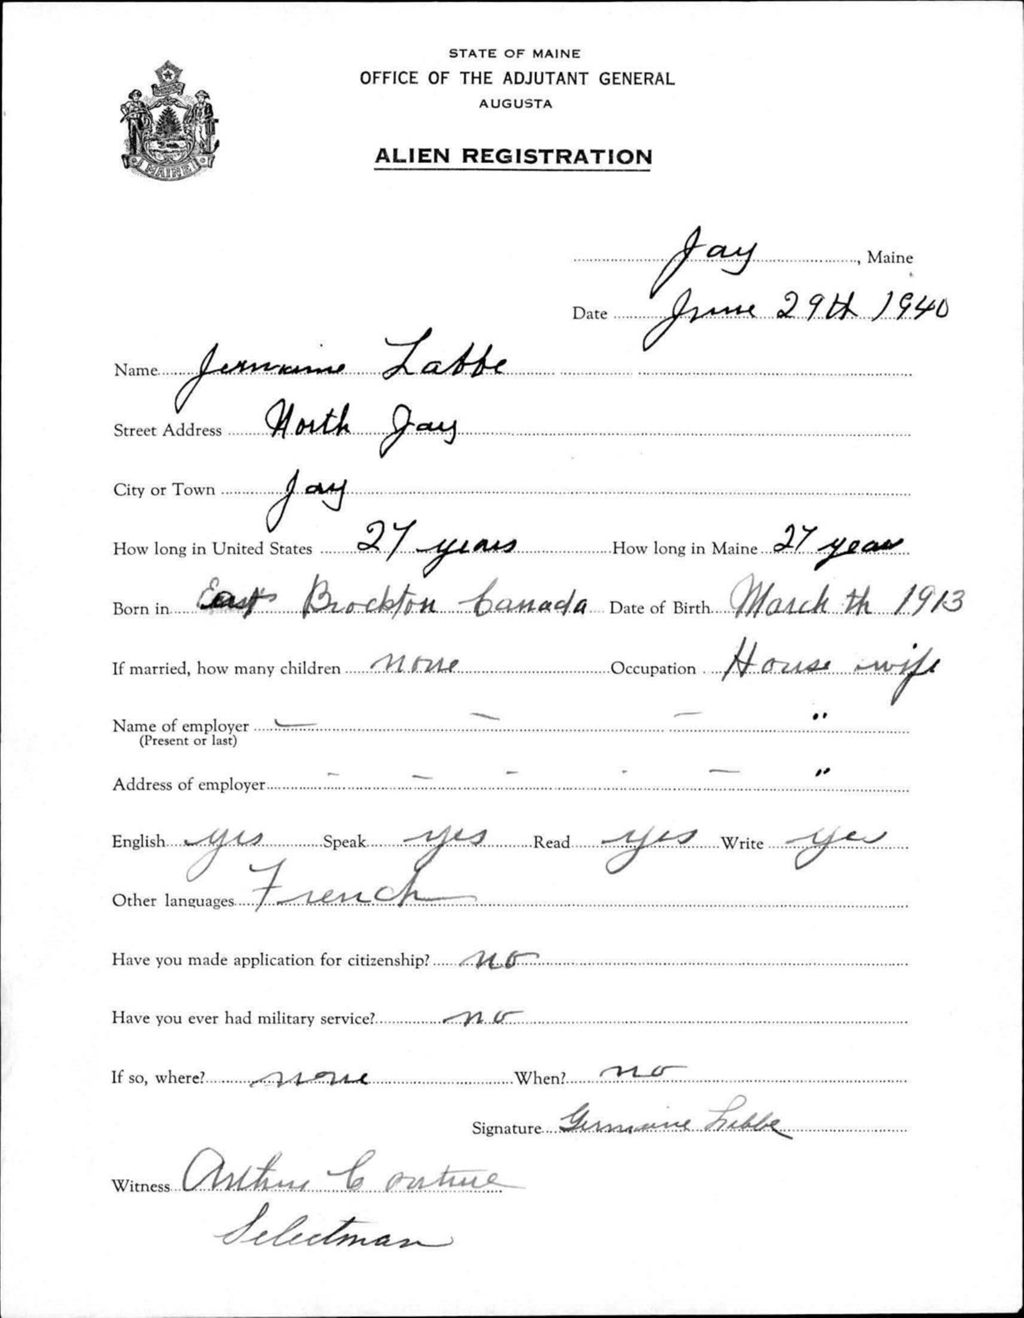 STATE OF MAINE
OFFICE OF THE ADJUTANT GENERAL
AUGUSTA
ALIEN REGISTRATION
MAINE
Jay, Maine
Date June 29th 1940
Name Jermaine Labbe
Street Address North Jay
City or Town Jay
How long in United States 27 years How long in Maine 27 years
Born in East Brockton Canada Date of Birth March th 1913
If married, how many children none Occupation House wife
Name of employer — — — "
(Present or last)
Address of employer - - - - — "
English yes Speak yes Read yes Write yes
Other languages French
Have you made application for citizenship? no
Have you ever had military service? no
If so, where? none When? no
Signature Germaine Labbe
Witness Arthur Couture
Selectman